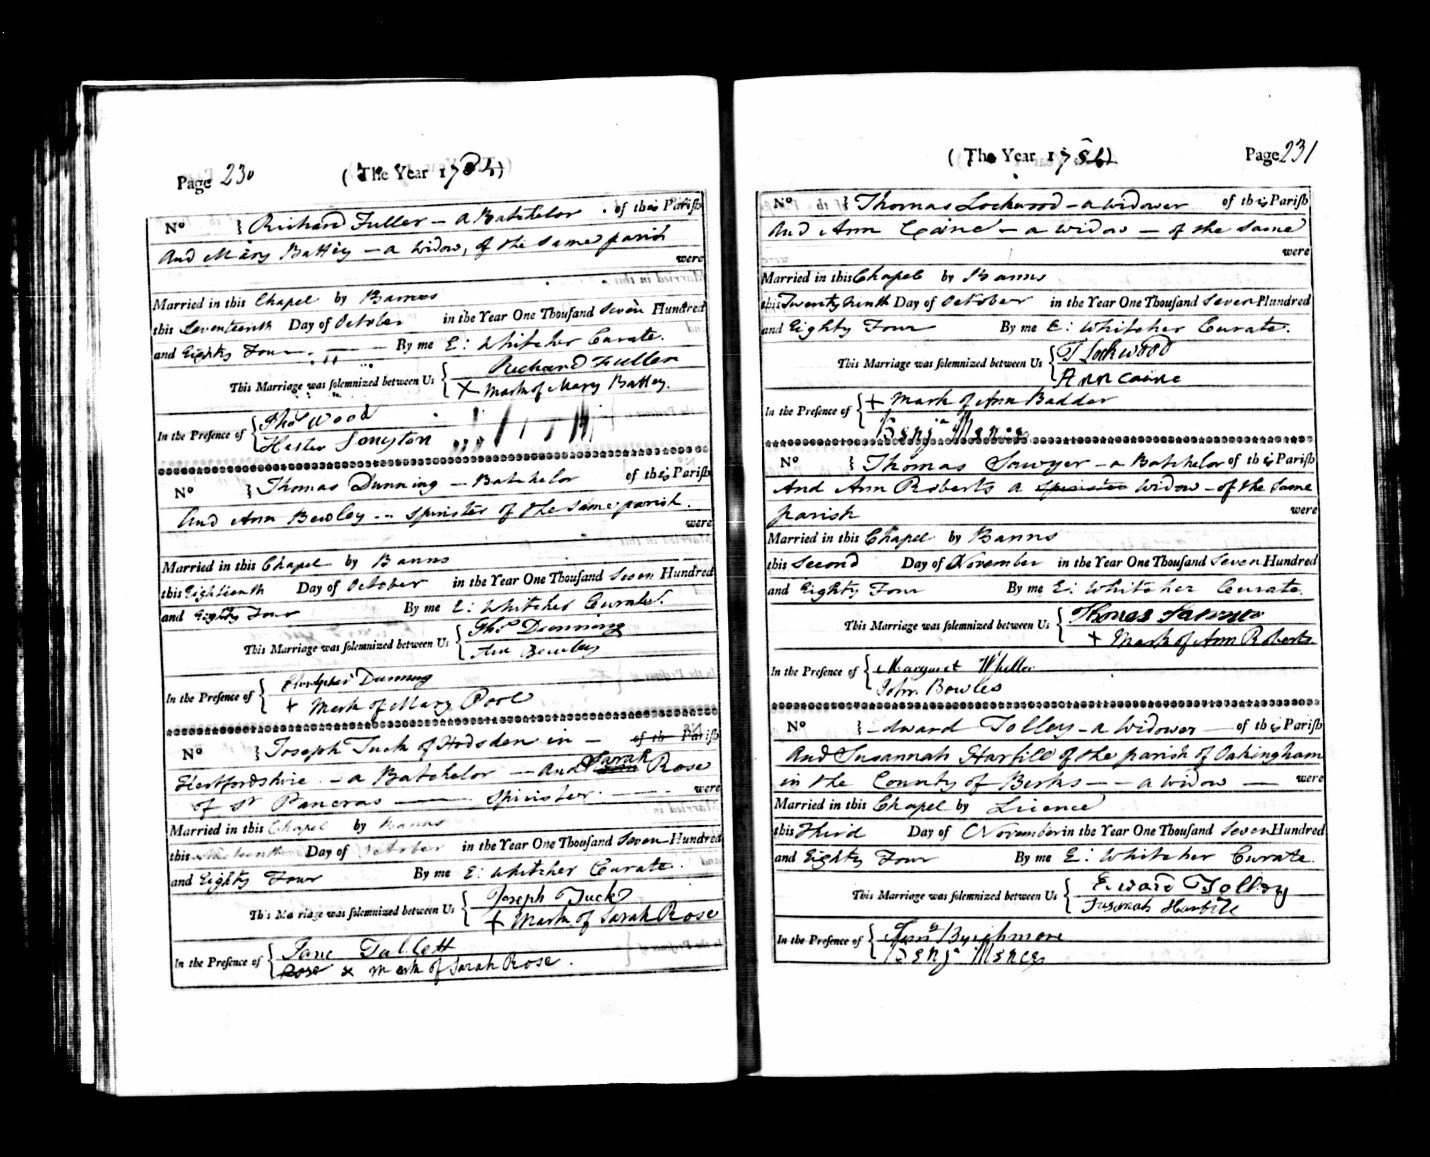 Page 230
( The Year 1784)
No } Richard Fuller - a Batchelor of this Parish
And Mary Battey - a Widow, of the same parish
were
Married in this Chapel by Banns
this Seventeenth Day of October in the Year One Thousand Seven Hundred
and Eighty Four By me E: Whitcher Curate.
This Marriage was solemnized between Us { Richard Fuller
X Mark of Mary Battey.
In the Presence of { Thos Wood
Hester
No } Thomas Dunning - Batchelor of this Parish
And Ann Bewley - Spinster of the same parish.
were
Married in this Chapel by Banns
this Eighteenth Day of October in the Year One Thousand Seven Hundred
and Eighty Four By me E: Whitcher Curate.
This Marriage was solemnized between Us { Thos Dunning
Ann Bewley
In the Presence of { Dunning
+ Mark of Mary Poole
No } Joseph Tuck of Hodsden in - of th Parish
Hertfordshire - a Batchelor - And Sarah Rose
of St Pancras - Spinster. were
Married in this Chapel by Banns
this Day of October in the Year One Thousand Seven Hundred
and Eighty Four By me E: Whitcher Curate.
This Marriage was solemnized between Us { Joseph Tuck
+ Mark of Sarah Rose
In the Presence of { Jane Tallett
Rose x mark of Sarah Rose.
( The Year 1784)
Page 231
No } Thomas Lockwood - a Widower of this Parish
And Ann Caine - a Widow - of the Same
were
Married in this Chapel by Banns
this Twenty Ninth Day of October in the Year One Thousand Seven Hundred
and Eighty Four By me E: Whitcher Curate.
This Marriage was solemnized between Us { T Lockwood
Ann Caine
In the Presence of { + Mark of Ann Badder
Benjn Mence
No } Thomas Sawyer - a Batchelor of this Parish
And Ann Roberts a Spinster Widow - of the Same
parish were
Married in this Chapel by Banns
this Second Day of November in the Year One Thousand Seven Hundred
and Eighty Four By me E: Whitcher Curate.
This Marriage was solemnized between Us { Thomas Sawyer
+ Mark of Ann Roberts
In the Presence of { Margaret
John Bowles
No } Edward Tolley - a Widower - of this Parish
And Susannah Harfill of the parish of Oakingham
in the County of Berks - - a Widow - were
Married in this Chapel by Licence
this Third Day of November in the Year One Thousand Seven Hundred
and Eighty Four By me E: Whitcher Curate.
This Marriage was solemnized between Us { Edward Tolley
Susanah
In the Presence of {
Benjn Mence